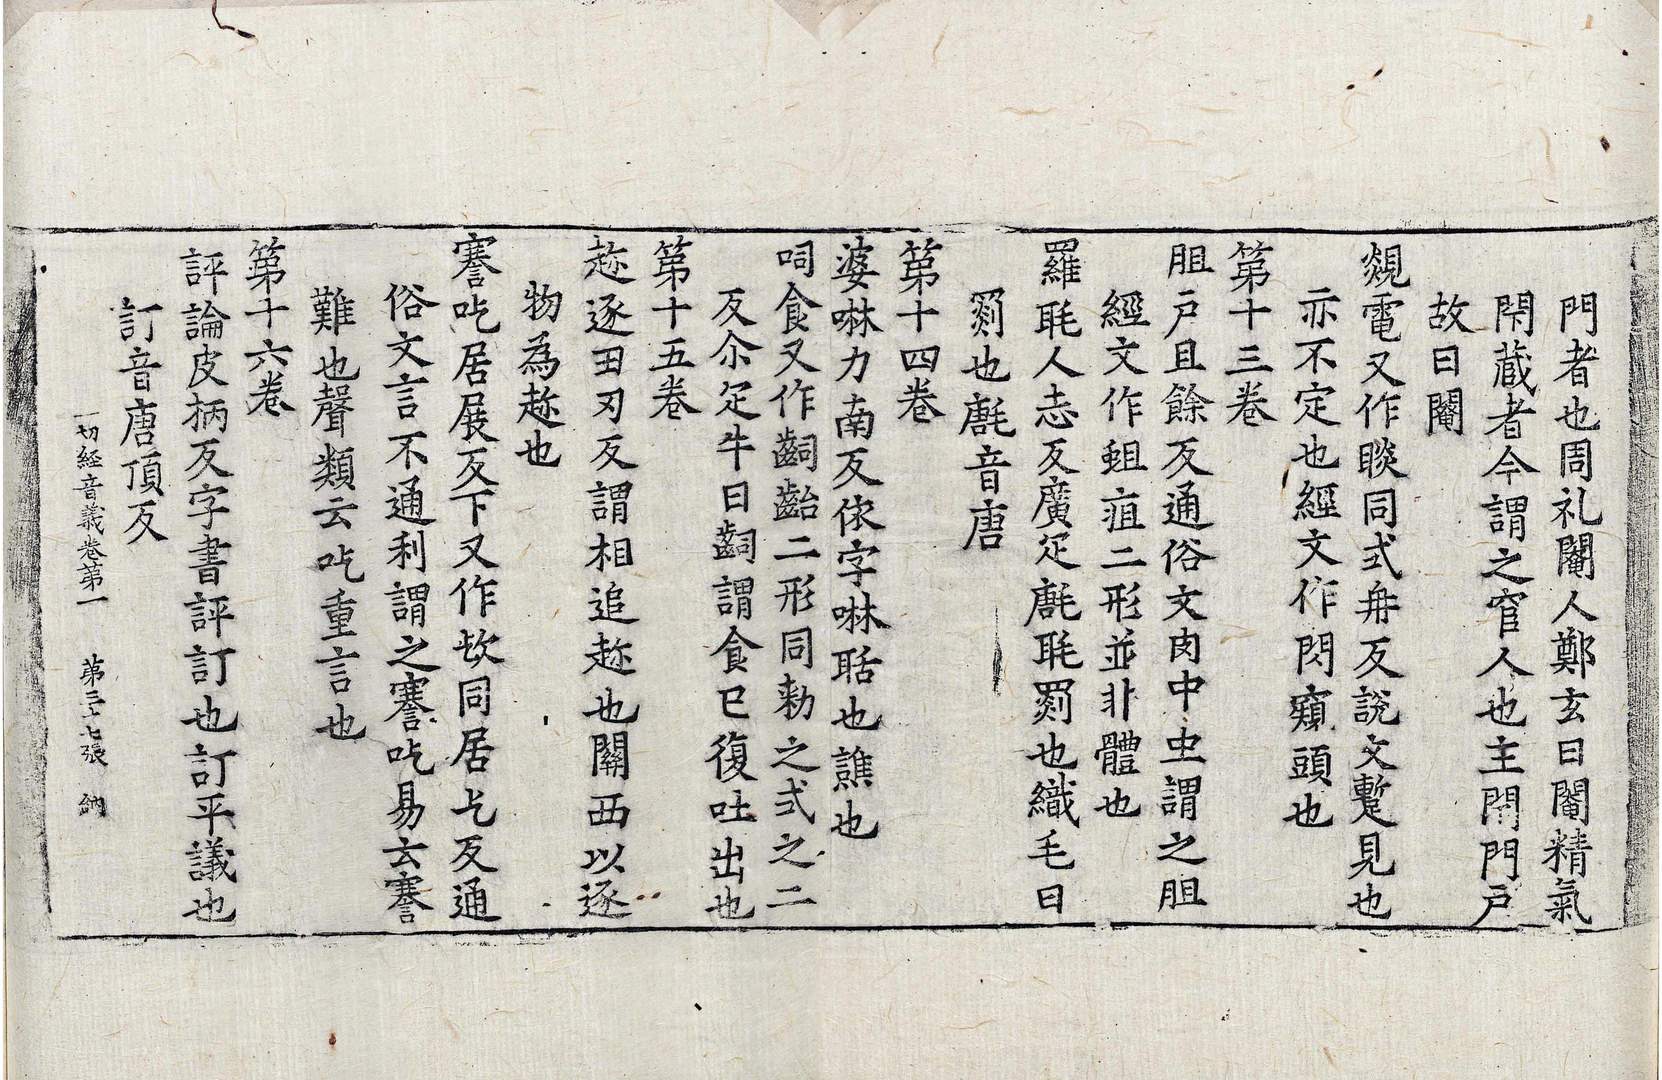 門者也周礼閹人鄭玄曰閹精氣
閇藏者今謂之宦人也主閇門戶
故曰閹
覢電又作睒同式冉反說文蹔見也
亦不定也經文作閃𩔖頭也
第十三卷
胆戶且餘反通俗文肉中虫謂之胆
經文作蛆疽二形並非體也
羅毦人志反廣疋㲪毦罽也織毛曰
罽也㲪音唐
第十四卷
婆啉力南反依字啉聒也譙也
呞食又作齝齛二形同勑之式之二
反尒疋牛曰齝謂食已復吐出也
第十五卷
趂逐丑刃反謂相追趂也關西以逐
物為趂也
謇吃居展反下又作㰟同居乞反通
俗文言不通利謂之謇吃易云謇
難也聲類云吃重言也
第十六卷
評論皮柄反字書評訂也訂平議也
訂音唐頂反
一切經音義卷第一 第三十七張 納